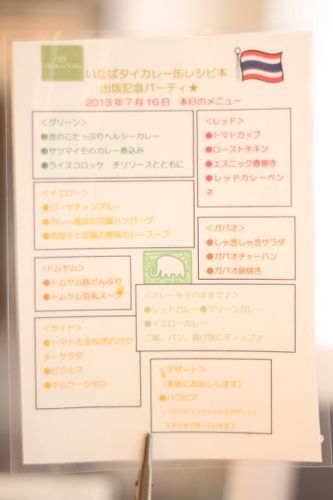 いなばタイカレー缶レシピ本
出版記念パーティ★
2013年7月16日 本日のメニュー
＜グリーン＞
●きのこたっぷりヘルシーカレー
●サツマイモのカレー煮込み
●ライスコロッケ チリソースとともに
＜レッド＞
●トマトカップ
●ローストチキン
●エスニック春巻き
●レッドカレーペン
ネ
＜イエロー＞
●ゴーヤチャンプルー
●カレー風味の豆腐ハンバーグ
●肉団子と豆腐の春雨カレースープ
＜ガパオ＞
●しゃきしゃきサラダ
●ガパオチャーハン
●ガパオ卵焼き
＜トムヤム＞
●トムヤム豚どんぶり
●トムヤム豆乳スープ
＜カレーをそのままで♪＞
●レッドカレー●グリーンカレー
●イエローカレー
ご飯、パン、揚げ物にディップ♪
＜サイド＞
●トマトと玉ねぎのパク
チーサラダ
●ピクルス
●ヤムウーンセン
＜デザート＞
（最後にお出しします）
●ハウピア
（ハワイのココナツミルクデザート）